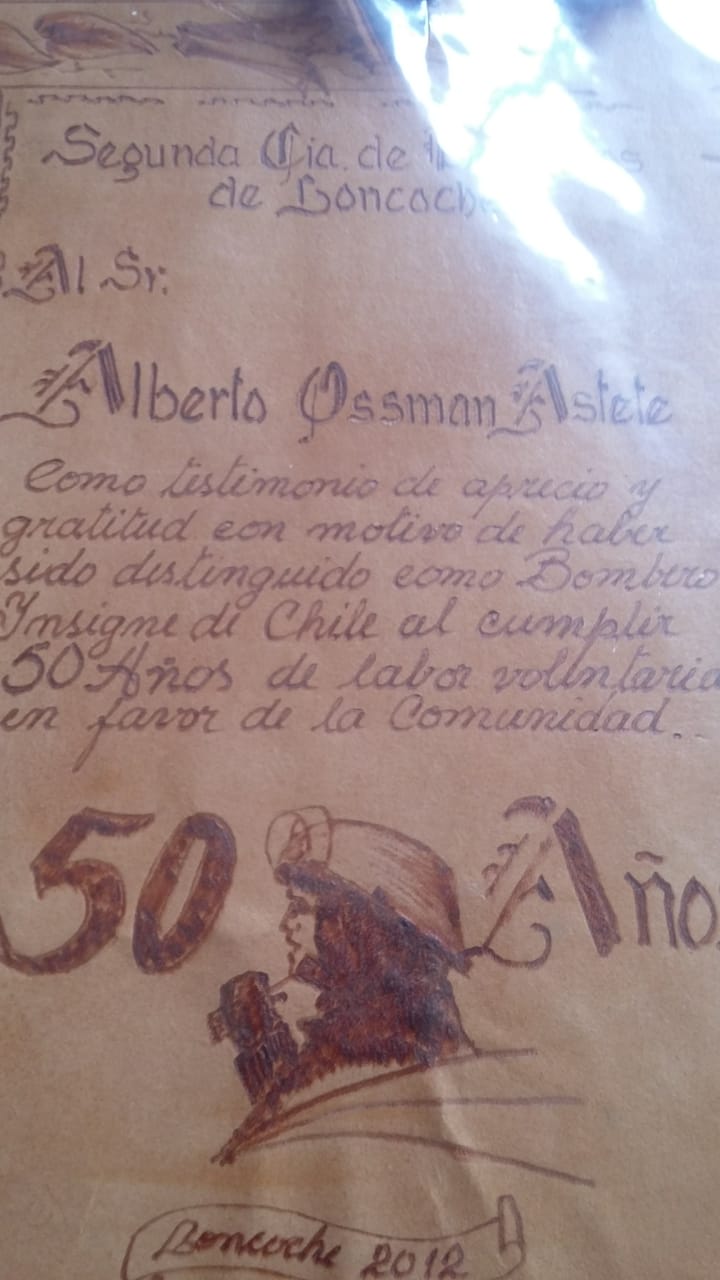 Segunda Cia. de
de Loncoche
Al Sr:
Alberto Ossman Astete
Como testimonio de aprecio y
gratitud con motivo de haber
sido distinguido como Bombero
Insigne de Chile al cumplir
50 Años de labor voluntaria
en favor de la Comunidad..
50 Años
Loncoche 2012